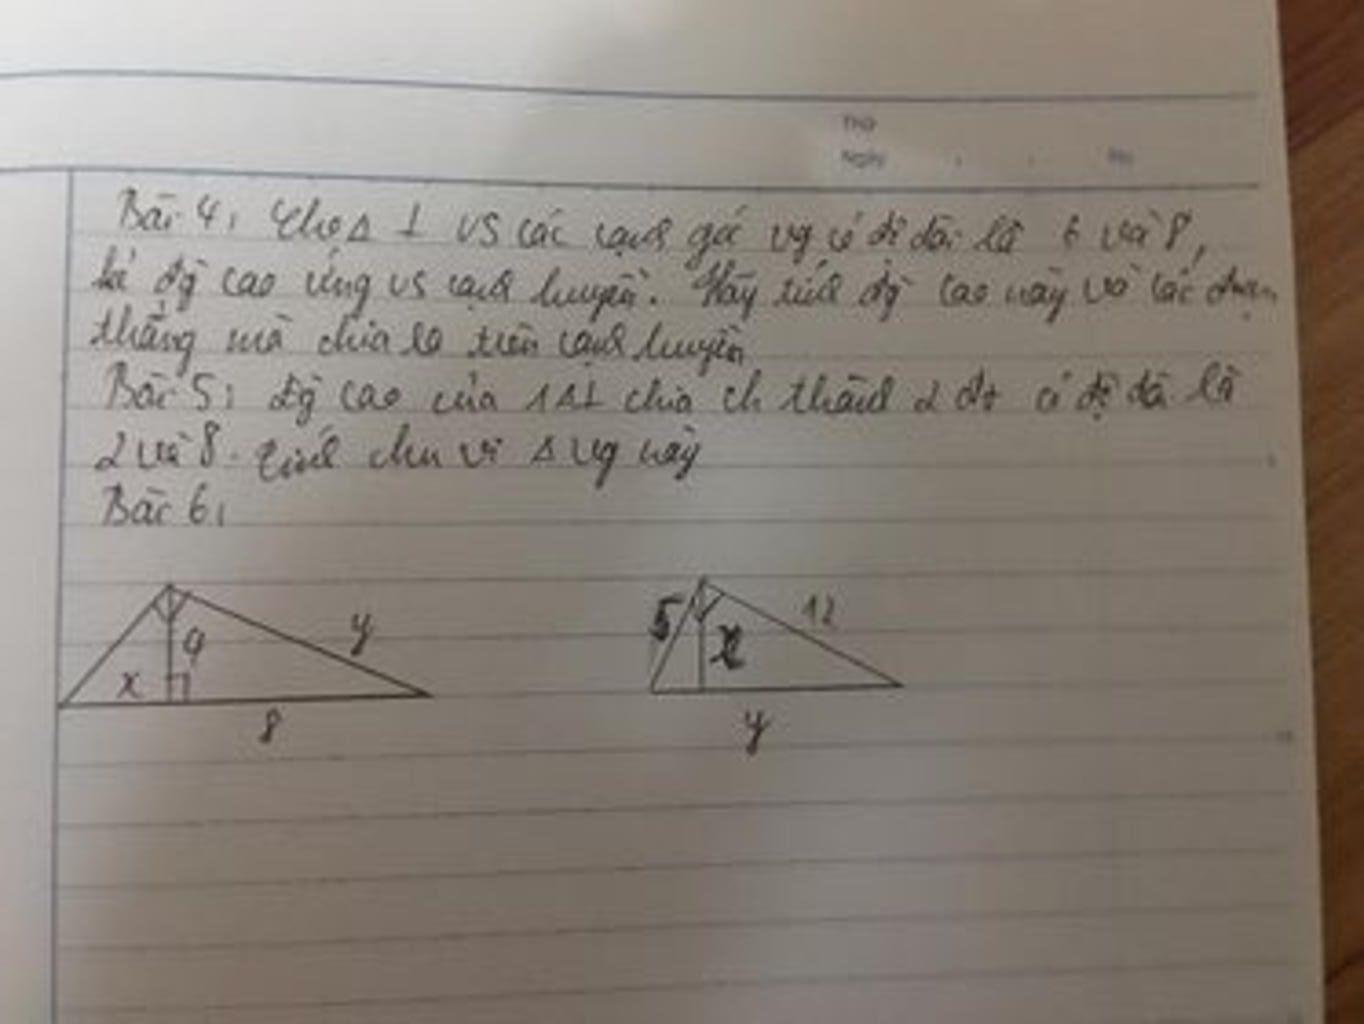 Thứ
Ngày . . No
Bài 4, Cho Δ ⊥ vs các cạnh góc vg có độ dài là 6 và 8,
kẻ đg cao ứng vs cạnh huyền. Hãy tính đg cao này và các đoạn
thẳng mà chia ra trên cạnh huyền
Bài 5, đg cao của 1 Δ ⊥ chia ch thành 2 đt có độ dài là
2 và 8. Tính chu vi Δ vg này
Bài 6,
x y 8
5 12 x y